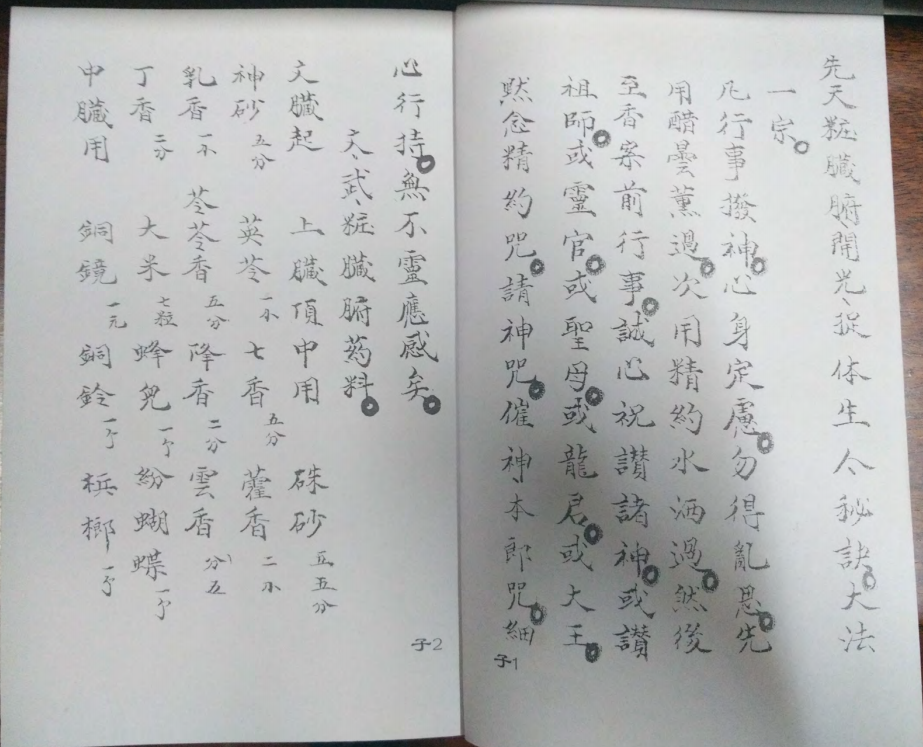 先天粧臟腑開光、捉体生人秘訣。大法
一宗。
凡行事撥神。心身定慮。勿得亂思。先
用醋曇薰過。次用精約水洒過。然後
至香案前行事。誠心祝讃諸神。或讃
祖師。或靈官。或聖母。或龍君。或大王。
默念精約咒。請神咒。催神、本郎咒。細
子1
心行持。無不靈應感矣。
文、武、粧臟腑葯料。
文臟起 上臟頂中用 硃砂 五分
神砂 五分 英苓 一小 七香 五分 藿香 二小
乳香 一小 苓苓香 五分 降香 二分 雲香 分五
丁香 二分 大米 七粒 蜂兒 一个 紛蝴蝶 一个
中臟用 銅鏡 一元 銅鈴 一个 槟榔 一个
子2